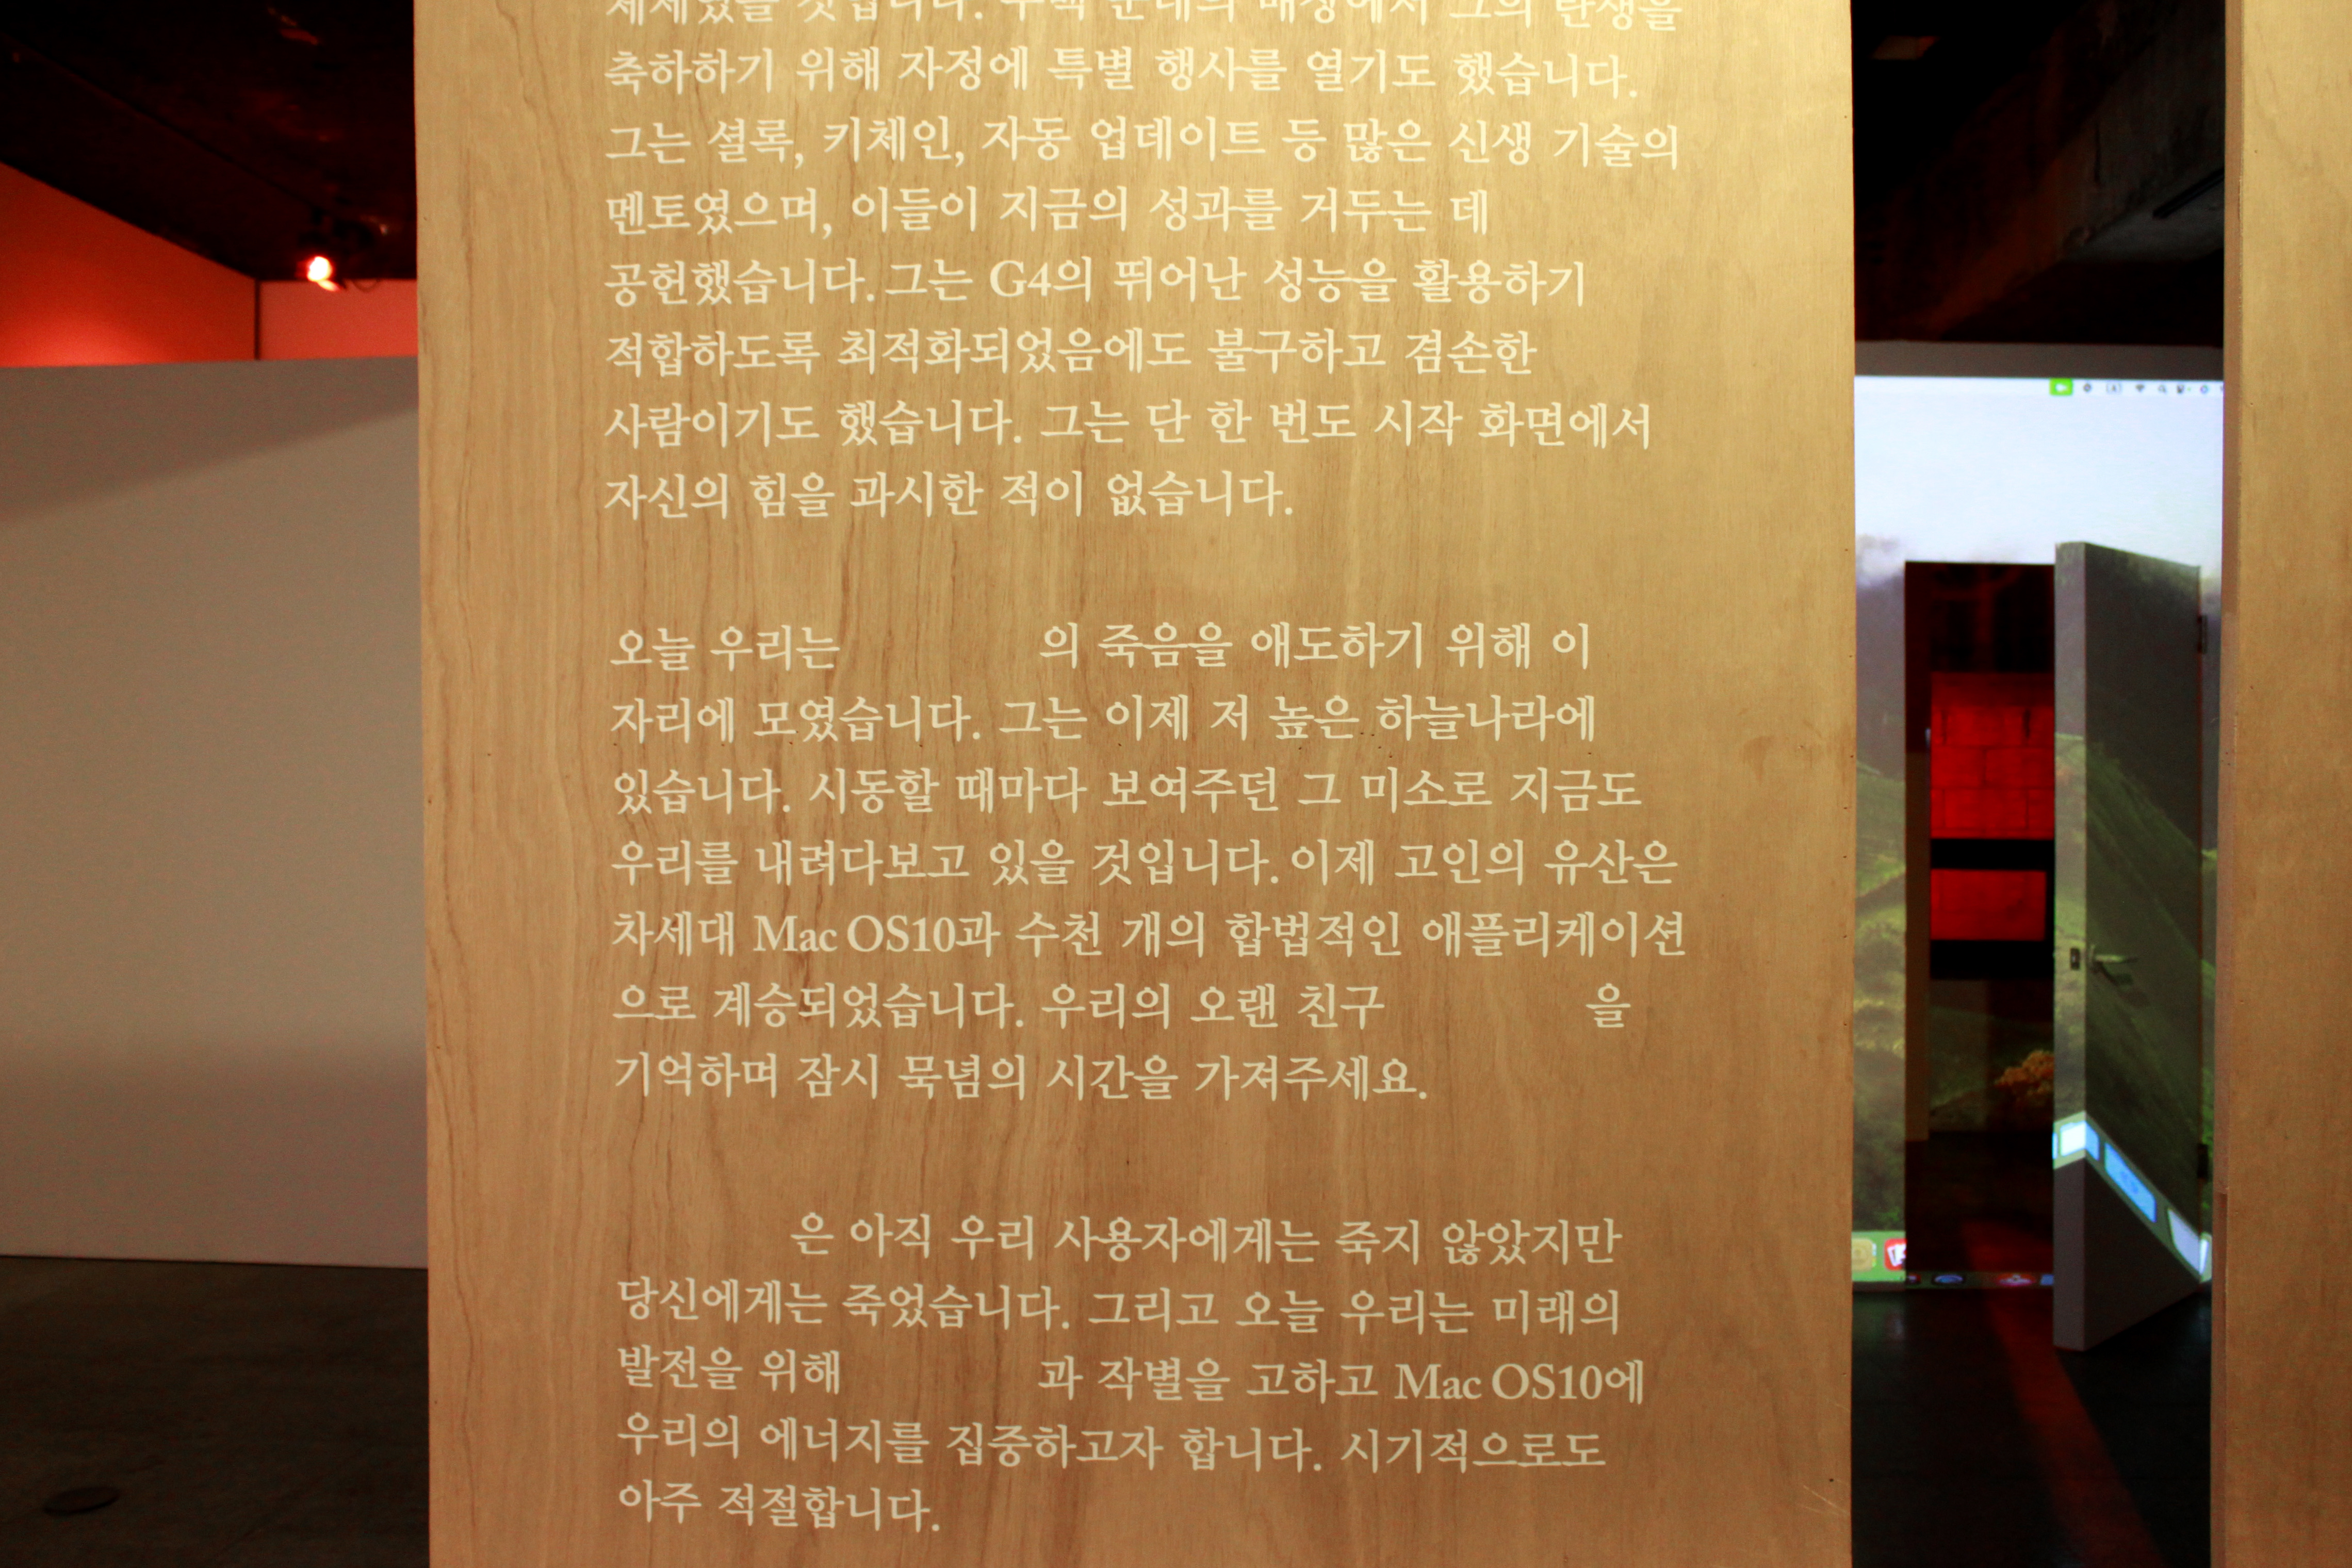 그의 탄생을
축하하기 위해 자정에 특별 행사를 열기도 했습니다.
그는 셜록, 키체인, 자동 업데이트 등 많은 신생 기술의
멘토였으며, 이들이 지금의 성과를 거두는 데
공헌했습니다. 그는 G4의 뛰어난 성능을 활용하기
적합하도록 최적화되었음에도 불구하고 겸손한
사람이기도 했습니다. 그는 단 한 번도 시작 화면에서
자신의 힘을 과시한 적이 없습니다.
오늘 우리는 의 죽음을 애도하기 위해 이
자리에 모였습니다. 그는 이제 저 높은 하늘나라에
있습니다. 시동할 때마다 보여주던 그 미소로 지금도
우리를 내려다보고 있을 것입니다. 이제 고인의 유산은
차세대 Mac OS10과 수천 개의 합법적인 애플리케이션
으로 계승되었습니다. 우리의 오랜 친구 을
기억하며 잠시 묵념의 시간을 가져주세요.
은 아직 우리 사용자에게는 죽지 않았지만
당신에게는 죽었습니다. 그리고 오늘 우리는 미래의
발전을 위해 과 작별을 고하고 Mac OS10에
우리의 에너지를 집중하고자 합니다. 시기적으로도
아주 적절합니다.